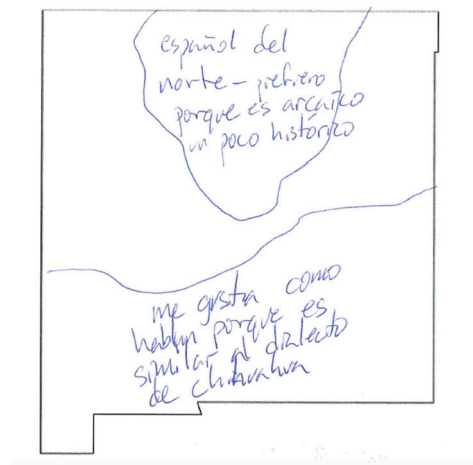 español del
norte – prefiero
porque es arcaico
un poco histórico
me gusta como
hablan porque es
similar al dialecto
de Chihuahua